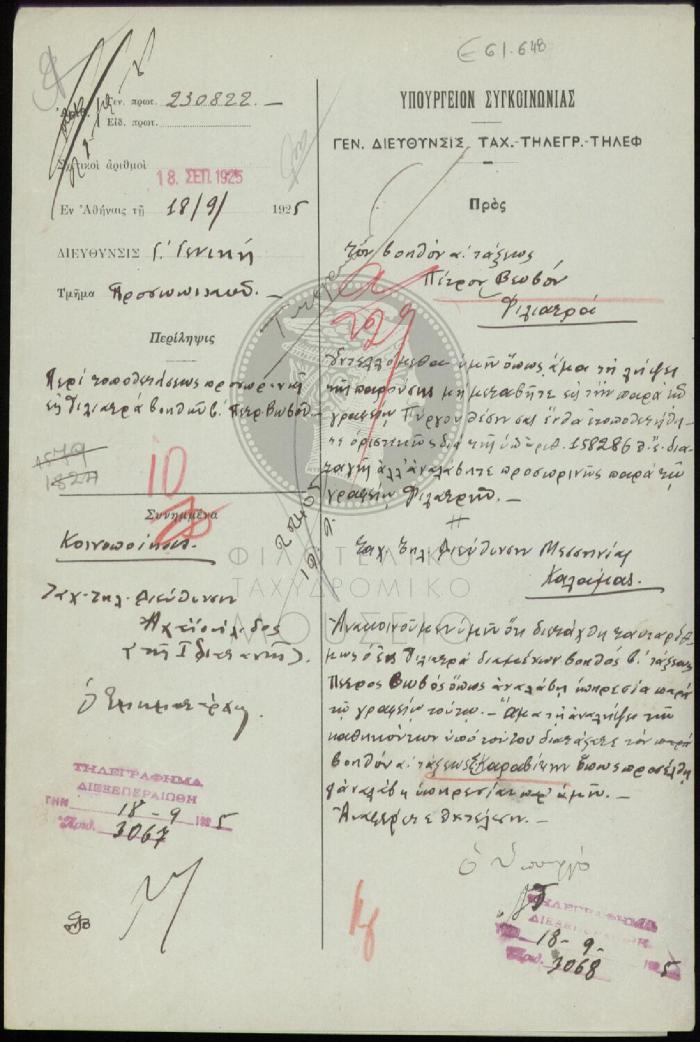 Ε 61.648
Γεν. πρωτ. 230822.—
Εἰδ. πρωτ.
Σχετικοὶ ἀριθμοὶ
18. ΣΕΠ. 1925
Ἐν Ἀθήναις τῇ 18/9/ 1925
ΔΙΕΥΘΥΝΣΙΣ Γ' Γενικὴ
Τμῆμα Προσωπικοῦ.—
Περίληψις
Περὶ τοποθετήσεως προσωρινῆς
εἰς Φιλιατρά βοηθοῦ β. Πετρ. Βωβοῦ.—
1579
1827
10
Συνημμένα
Κοινοποίησις.
Ταχ. Τηλ. Διεύθυνσιν
Ἀχαϊοήλιδος
Ὁ Τμηματάρχης
ΤΗΛΕΓΡΑΦΗΜΑ
ΔΙΕΞΕΠΕΡΑΙΩΘΗ
ΤΗΝ 18-9 1925
Ἀριθ. 3067
ΥΠΟΥΡΓΕΙΟΝ ΣΥΓΚΟΙΝΩΝΙΑΣ
ΓΕΝ. ΔΙΕΥΘΥΝΣΙΣ ΤΑΧ.-ΤΗΛΕΓΡ.-ΤΗΛΕΦ
Πρὸς
τὸν βοηθὸν α. τάξεως
Πέτρον Βωβόν
Φιλιατρά
Ἐντελλόμεθα ὑμῖν ὅπως ἅμα τῇ λήψει
τῆς παρούσης μὴ μεταβῆτε εἰς τὴν παρὰ τῷ
γραφείῳ Πύργου θέσιν σας ἔνθα ἐτοποθετήθη-
τε ὁριστικῶς διὰ τῆς ὑπ' ἀριθ. 158286 π. ἔ. δια-
ταγῆς ἀλλ' ἀναλάβητε προσωρινῶς παρὰ τῷ
γραφείῳ Φιλιατρῶν.—
Ταχ. Τηλ. Διεύθυνσιν Μεσσηνίας
Καλάμας.
Ἀνακοινοῦμεν ὑμῖν ὅτι διετάχθη
ὁ εἰς Φιλιατρά διαμένων βοηθὸς β. τάξεως
Πέτρος Βωβός ὅπως ἀναλάβῃ ὑπηρεσία παρὰ
τῷ γραφείῳ τούτῳ.— Ἅμα τῇ ἀναλήψει τῶν
καθηκόντων ὑπὸ τούτου διατάξετε τὸν
βοηθὸν α. τάξεως Καραβίτην ὅπως προσέλθῃ
ἀναλάβῃ ὑπηρεσίαν παρ' ὑμῖν.—
Ἀναφέρατε ἐκτέλεσιν.—
Ὁ Ὑπουργὸς
ΤΗΛΕΓΡΑΦΗΜΑ
ΔΙΕΞΕΠΕΡΑΙΩΘΗ
18-9- 1925
Ἀριθ. 3068
ΦΙΛΟΤΕΛΙΚΟ
ΤΑΧΥΔΡΟΜΙΚΟ
ΜΟΥΣΕΙΟ